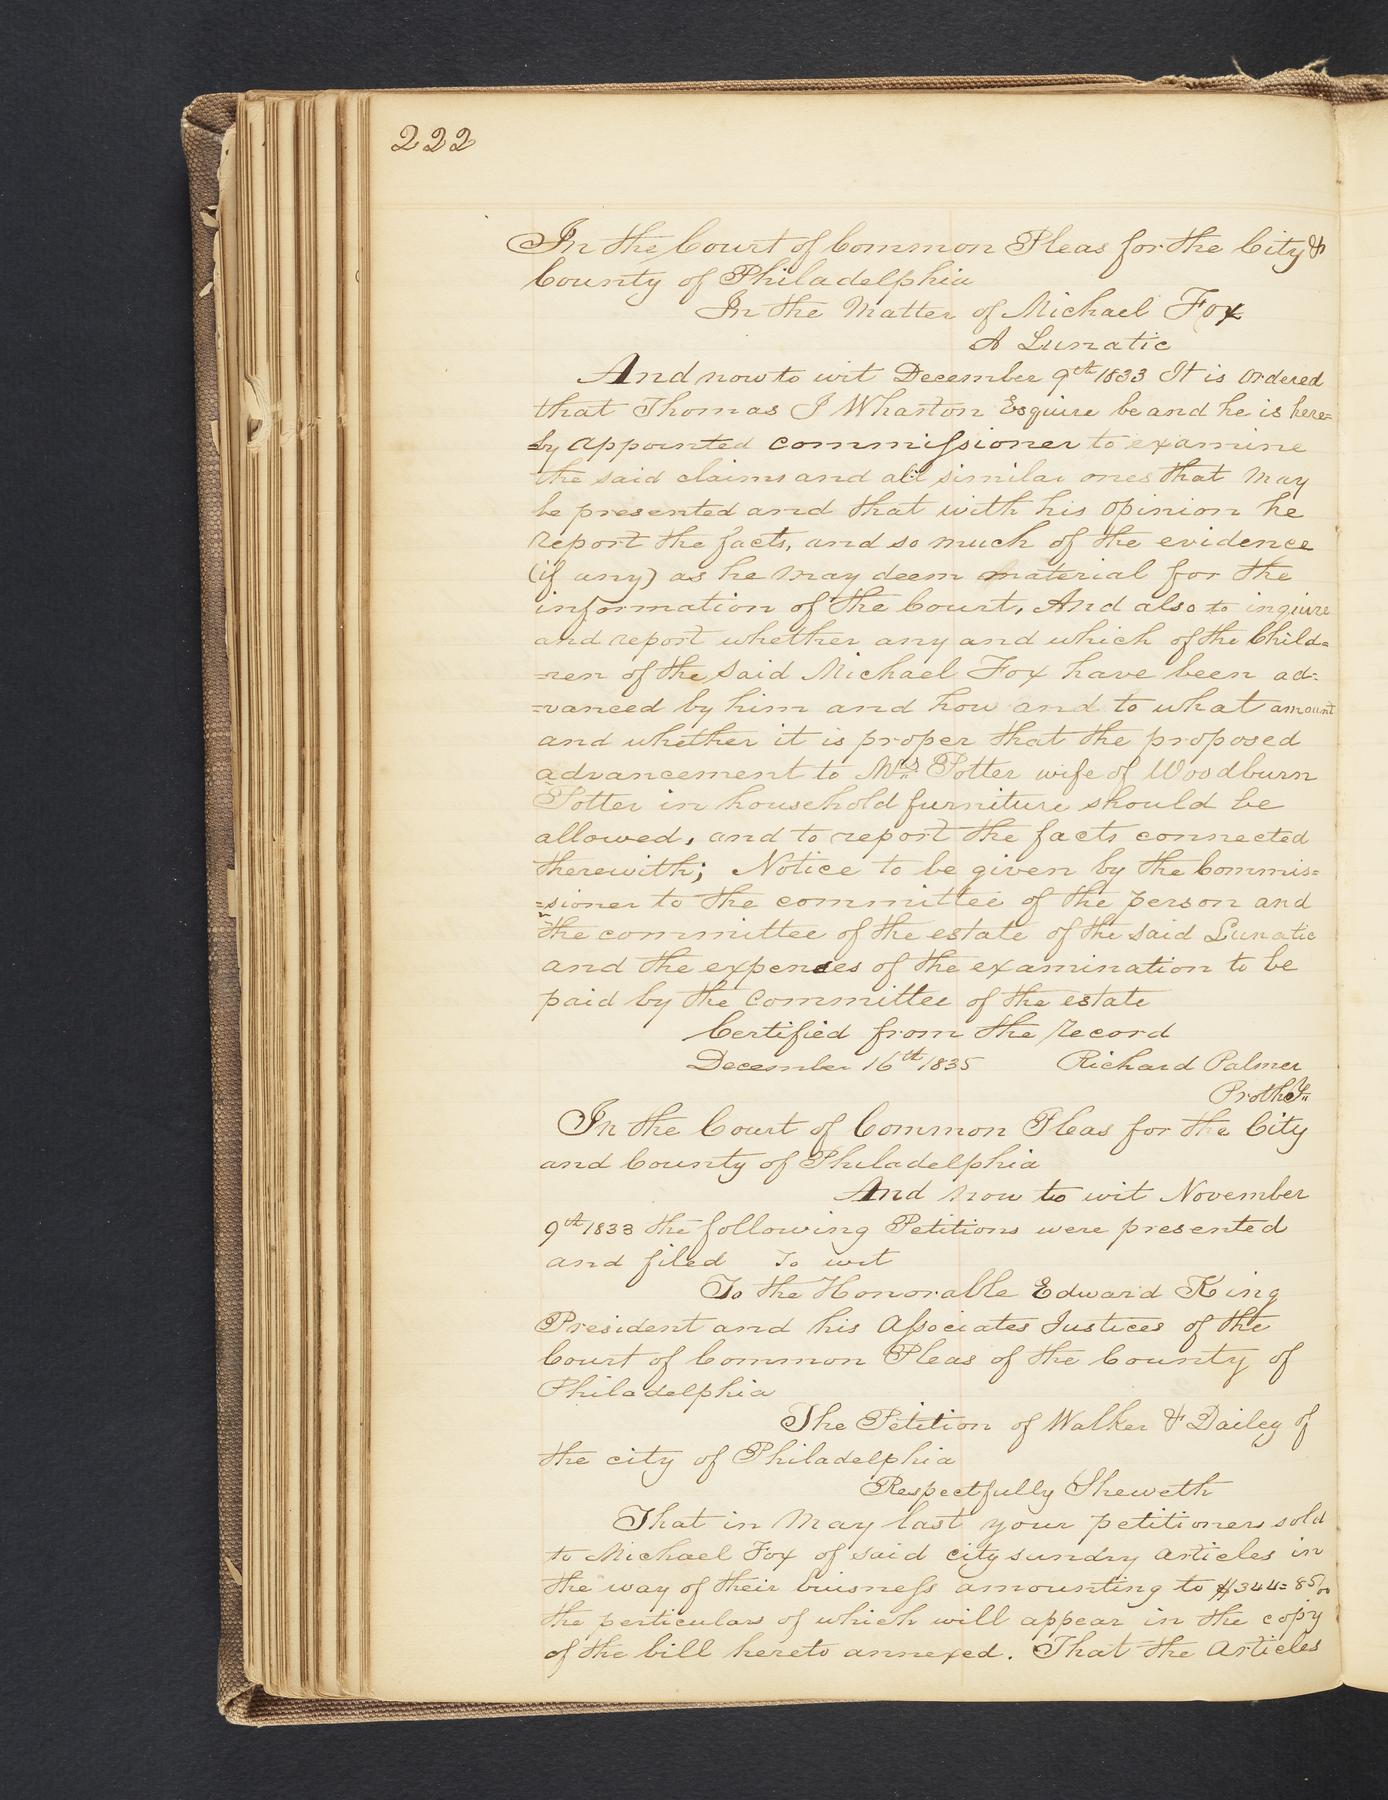 222
In the Court of Common Pleas for the City &
County of Philadelphia
In the Matter of Michael Fox
A Lunatic
And now to wit December 9th 1833 It is Ordered
that Thomas I Wharton Esquire be and he is here=
by appointed commissioner to examine
the said claims and all similar ones that may
be presented and that with his opinion he
report the facts, and so much of the evidence
(if any) as he may deem material for the
information of the Court, And also to inquire
and report whether any and which of the Child=
=ren of the said Michael Fox have been ad=
=vanced by him and how and to what amount
and whether it is proper that the proposed
advancement to Mrs Potter wife of Woodburn
Potter in household furniture should be
allowed, and to report the facts connected
therewith; Notice to be given by the Commis=
=sioner to the committee of the person and
the committee of the estate of the said Lunatic
and the expences of the examination to be
paid by the Committee of the estate
Certified from the record
December 16th 1835 Richard Palmer
Prothy
In the Court of Common Pleas for the City
and County of Philadelphia
And now to wit November
9th 1833 the following Petitions were presented
and filed To wit
To the Honorable Edward King
President and his Associates Justices of the
Court of Common Pleas of the County of
Philadelphia
The Petition of Walker & Dailey of
the city of Philadelphia
Respectfully Sheweth
That in May last your petitioners sold
to Michael Fox of said city sundry articles in
the way of their buisness amounting to $344=85/00
the perticulars of which will appear in the copy
of the bill hereto annexed. That the articles